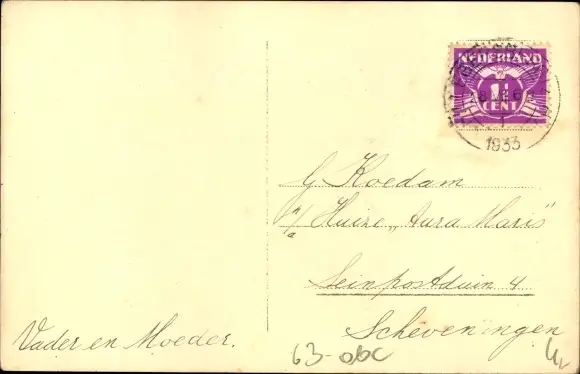 NEDERLAND
1½
CENT
1933
G Koedam
a/a Huize „Aura Maris"
Seinpostduin 4
Scheveningen
Vader en Moeder.
63-obc